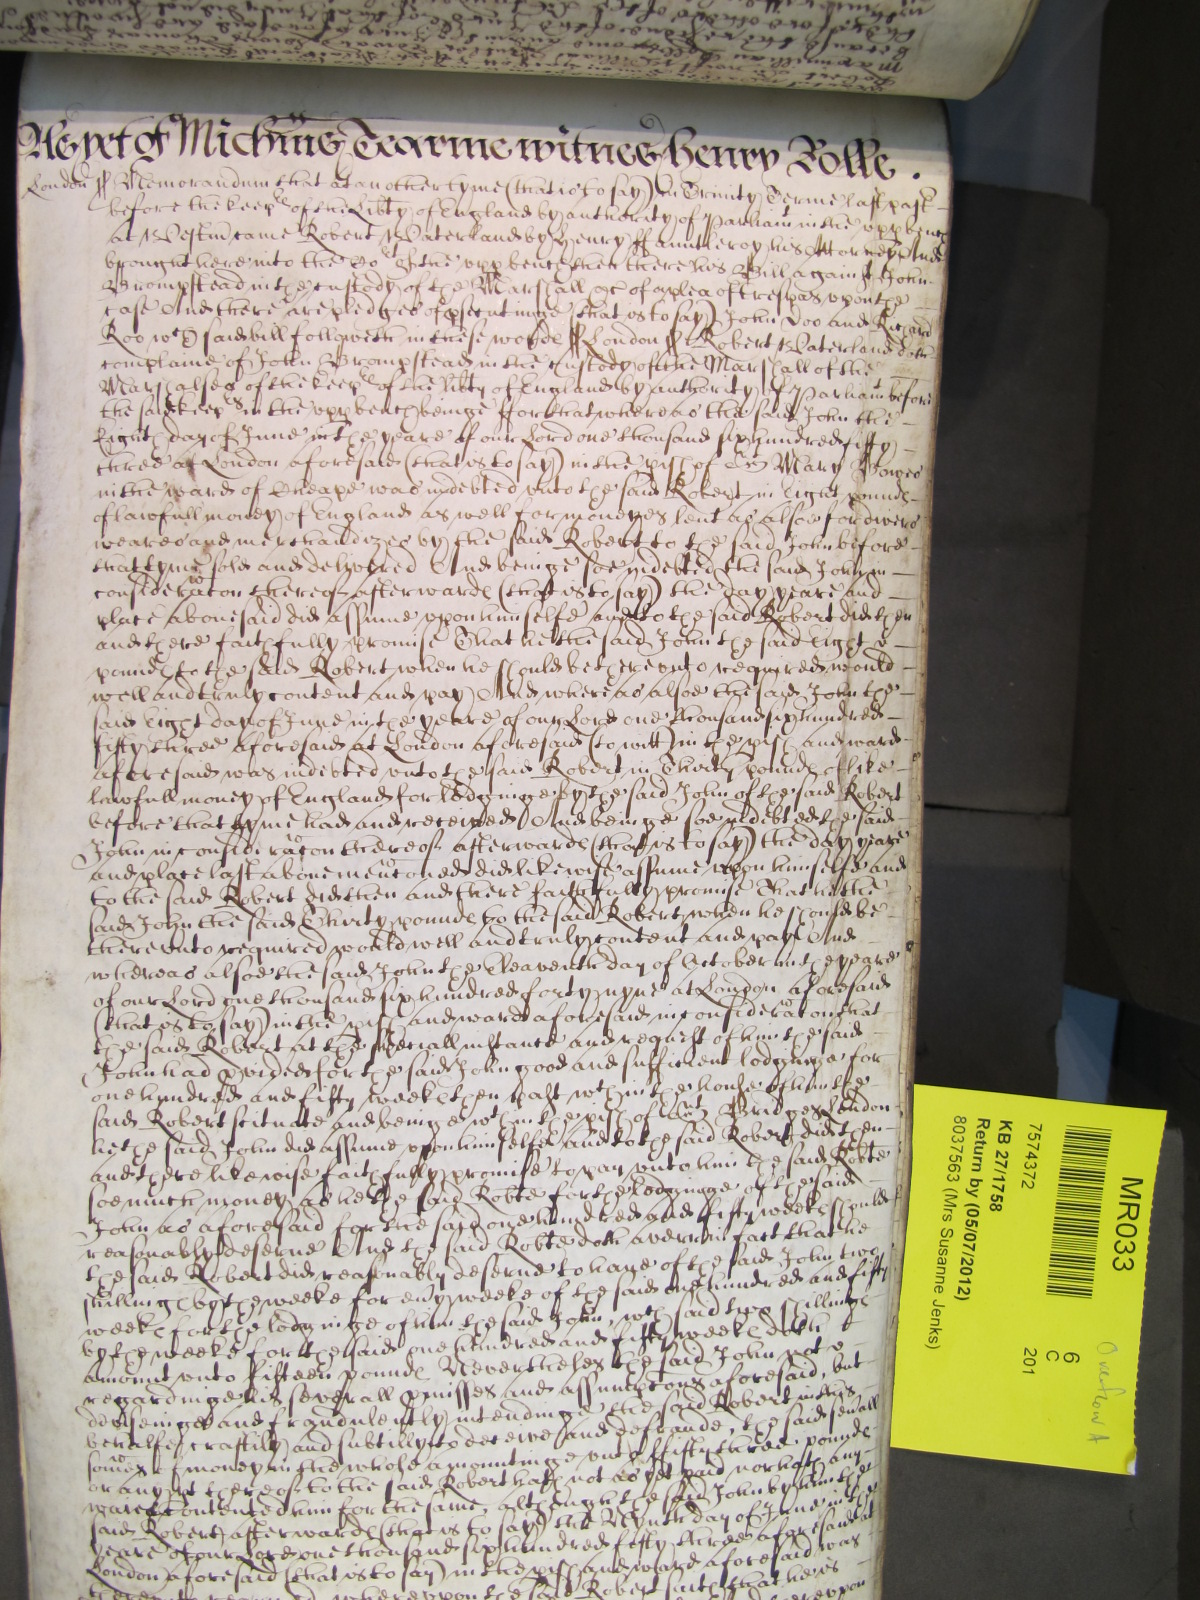 As yet of Mich'ms Tearme witnes Henry Rolle .
London ss Memorandum that at an other tyme (that is to say) in Trinity Terme last past
before the keep's of the Lib'ty of England by authority of Parliam't in the upp bench
at Westm' came Robert Waterland by Henry ffauntleroy his Attorney And
brought here into the Co't of the upp bench then there his Bill against John
Brompstead in the custody of the Marshall &c of a plea of trespas upon the
case And there are pledges of p'secutinge (that is to say) John Doo and Richard
Roo w'ch said bill followeth in these words ss London ss Robert Waterland doth
complaine of John Brompstead in the custody of the Marshall of the
Marshalsea of the keep's of the lib'ty of England by authority of Parliam't before
the said keep's in the upp bench beinge ffor that whereas the said John the
Eight day of June in the yeare of our Lord one thousand six hundred fifty
three at London aforesaid (that is to say) in the p'ish of Mary Bowes
in the ward of Cheape was indebted unto the said Robert in Eight pounds
of lawfull money of England as well for moneyes lent as alsoe for divers
weares and merchandizes by the said Robert to the said John before
that tyme sold and delivered And beinge soe indebted the said John in
consideracon thereof afterwards (that is to say) the day yeare and
place abovesaid did assume upon himselfe and to the said Robert did then
and there faithfully promise That he the said John the said Eight
pounds to the said Robert when he should be thereunto required would
well and truly content and pay And whereas alsoe the said John the
said Eight day of June in the yeare of our Lord one thousand six hundred
fifty three aforesaid at London aforesaid (to witt) in the p'ish and ward
aforesaid was indebted unto the said Robert in Thirty pounds of like
lawfull money of England for lodginge by the said John of the said Robert
before that tyme had and received And beinge soe indebted the said
John in consideracon thereof afterwards (that is to say) the day yeare
and place last above menconed did likewise assume upon himselfe and
to the said Robert did then and there faithfully promise That he the
said John the said Thirty pounds to the said Robert when he should be
thereunto required would well and truly content and pay And
whereas alsoe the said John the Eleaventh day of October in the yeare
of our Lord one thousand six hundred forty nyne at London aforesaid
(that is to say) in the p'ish and ward aforesaid in consideracon that
the said Robert at the speciall instance and request of him the said
John had p'vided for the said John good and sufficient lodginge for
one hundred and fifty weekes then past w'thin the house of him the
said Robert scituate and beinge w'thin the p'ish of Bridges London
he the said John did assume upon himselfe and to the said Robert did then
and there likewise faithfully promise to pay unto him the said Rob'te
soe much money as he the said Rob'te for the lodginge of the said
John as aforesaid for the said one hundred and fifty weekes should
reasonably deserve And the said Rob'te doth averr in fact that he
the said Robert did reasonably deserve to have of the said John two
shillings by the weeke for ev'y weeke of the said one hundred and fifty
weekes for the lodginge of him the said John, w'ch said two shillings
by the weeke for the said one hundred and fifty weekes doth
amount unto fifteen pounds Neverthelesse the said John not
regardinge his severall p'misses and assumptons aforesaid, but
deviseinge and fraudulently intendinge the said Robert in this
behalfe craftily and subtilly to deceive and defraude, the said sev'all
somes of money in the whole amountinge unto ffifty three pounds
or any p't thereof to the said Robert hath not as yet paid nor hath any
wayes contented him for the same, although the said John by him the
said Robert afterwards (that is to say) the Nynth day of June in the
yeare of our Lord one thousand six hundred fifty three aforesaid at
London aforesaid (that is to say) in the p'ish and ward aforesaid was
whereupon the said Robert saith that he is
MR033
7574372
KB 27/1758
Return by (05/07/2012)
8037563 (Mrs Susanne Jenks)
6
C
201
Overflow A